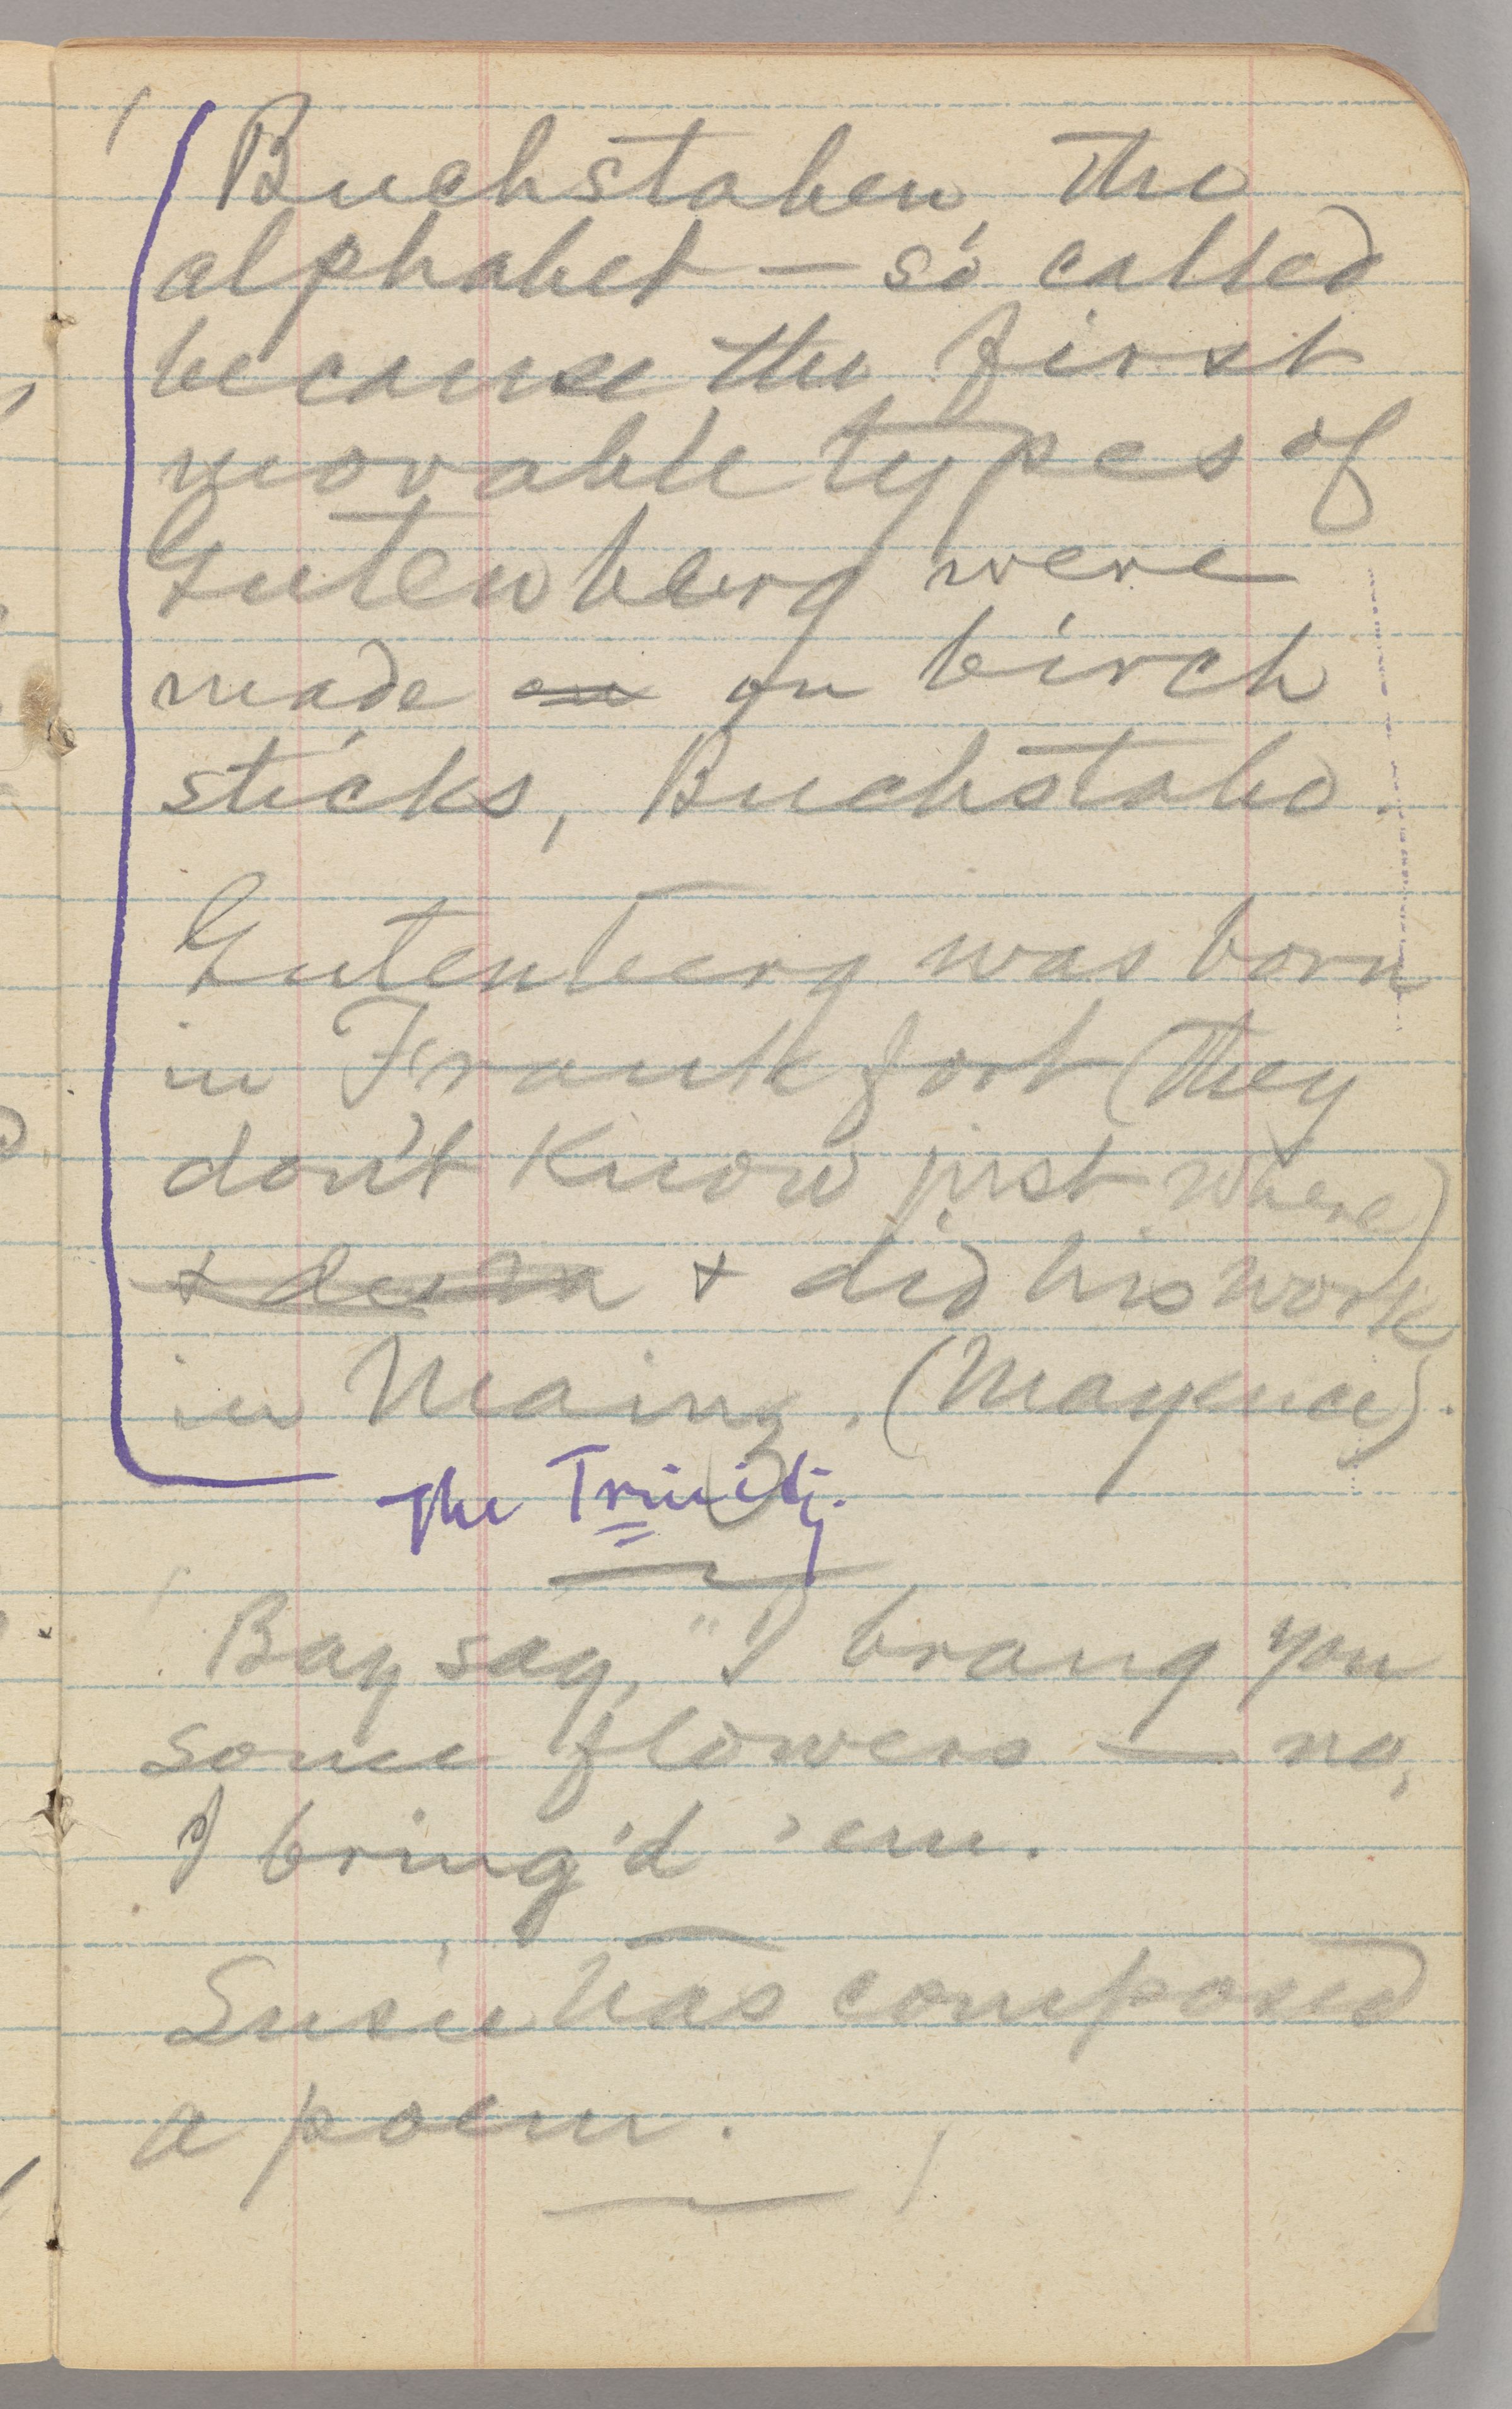 Buchstaben, the
alphabet — so called
because the first
movable types of
Gutenberg were
made on on birch
sticks, Buchstabe.
Gutenberg was born
in Frankfort (they
don't know just where)
& did his work
in Mainz. (Mayence).
The Trinity.
Bay say, "I brang you
some flowers — no,
I bring'd 'em.
Susie has composed
a poem.